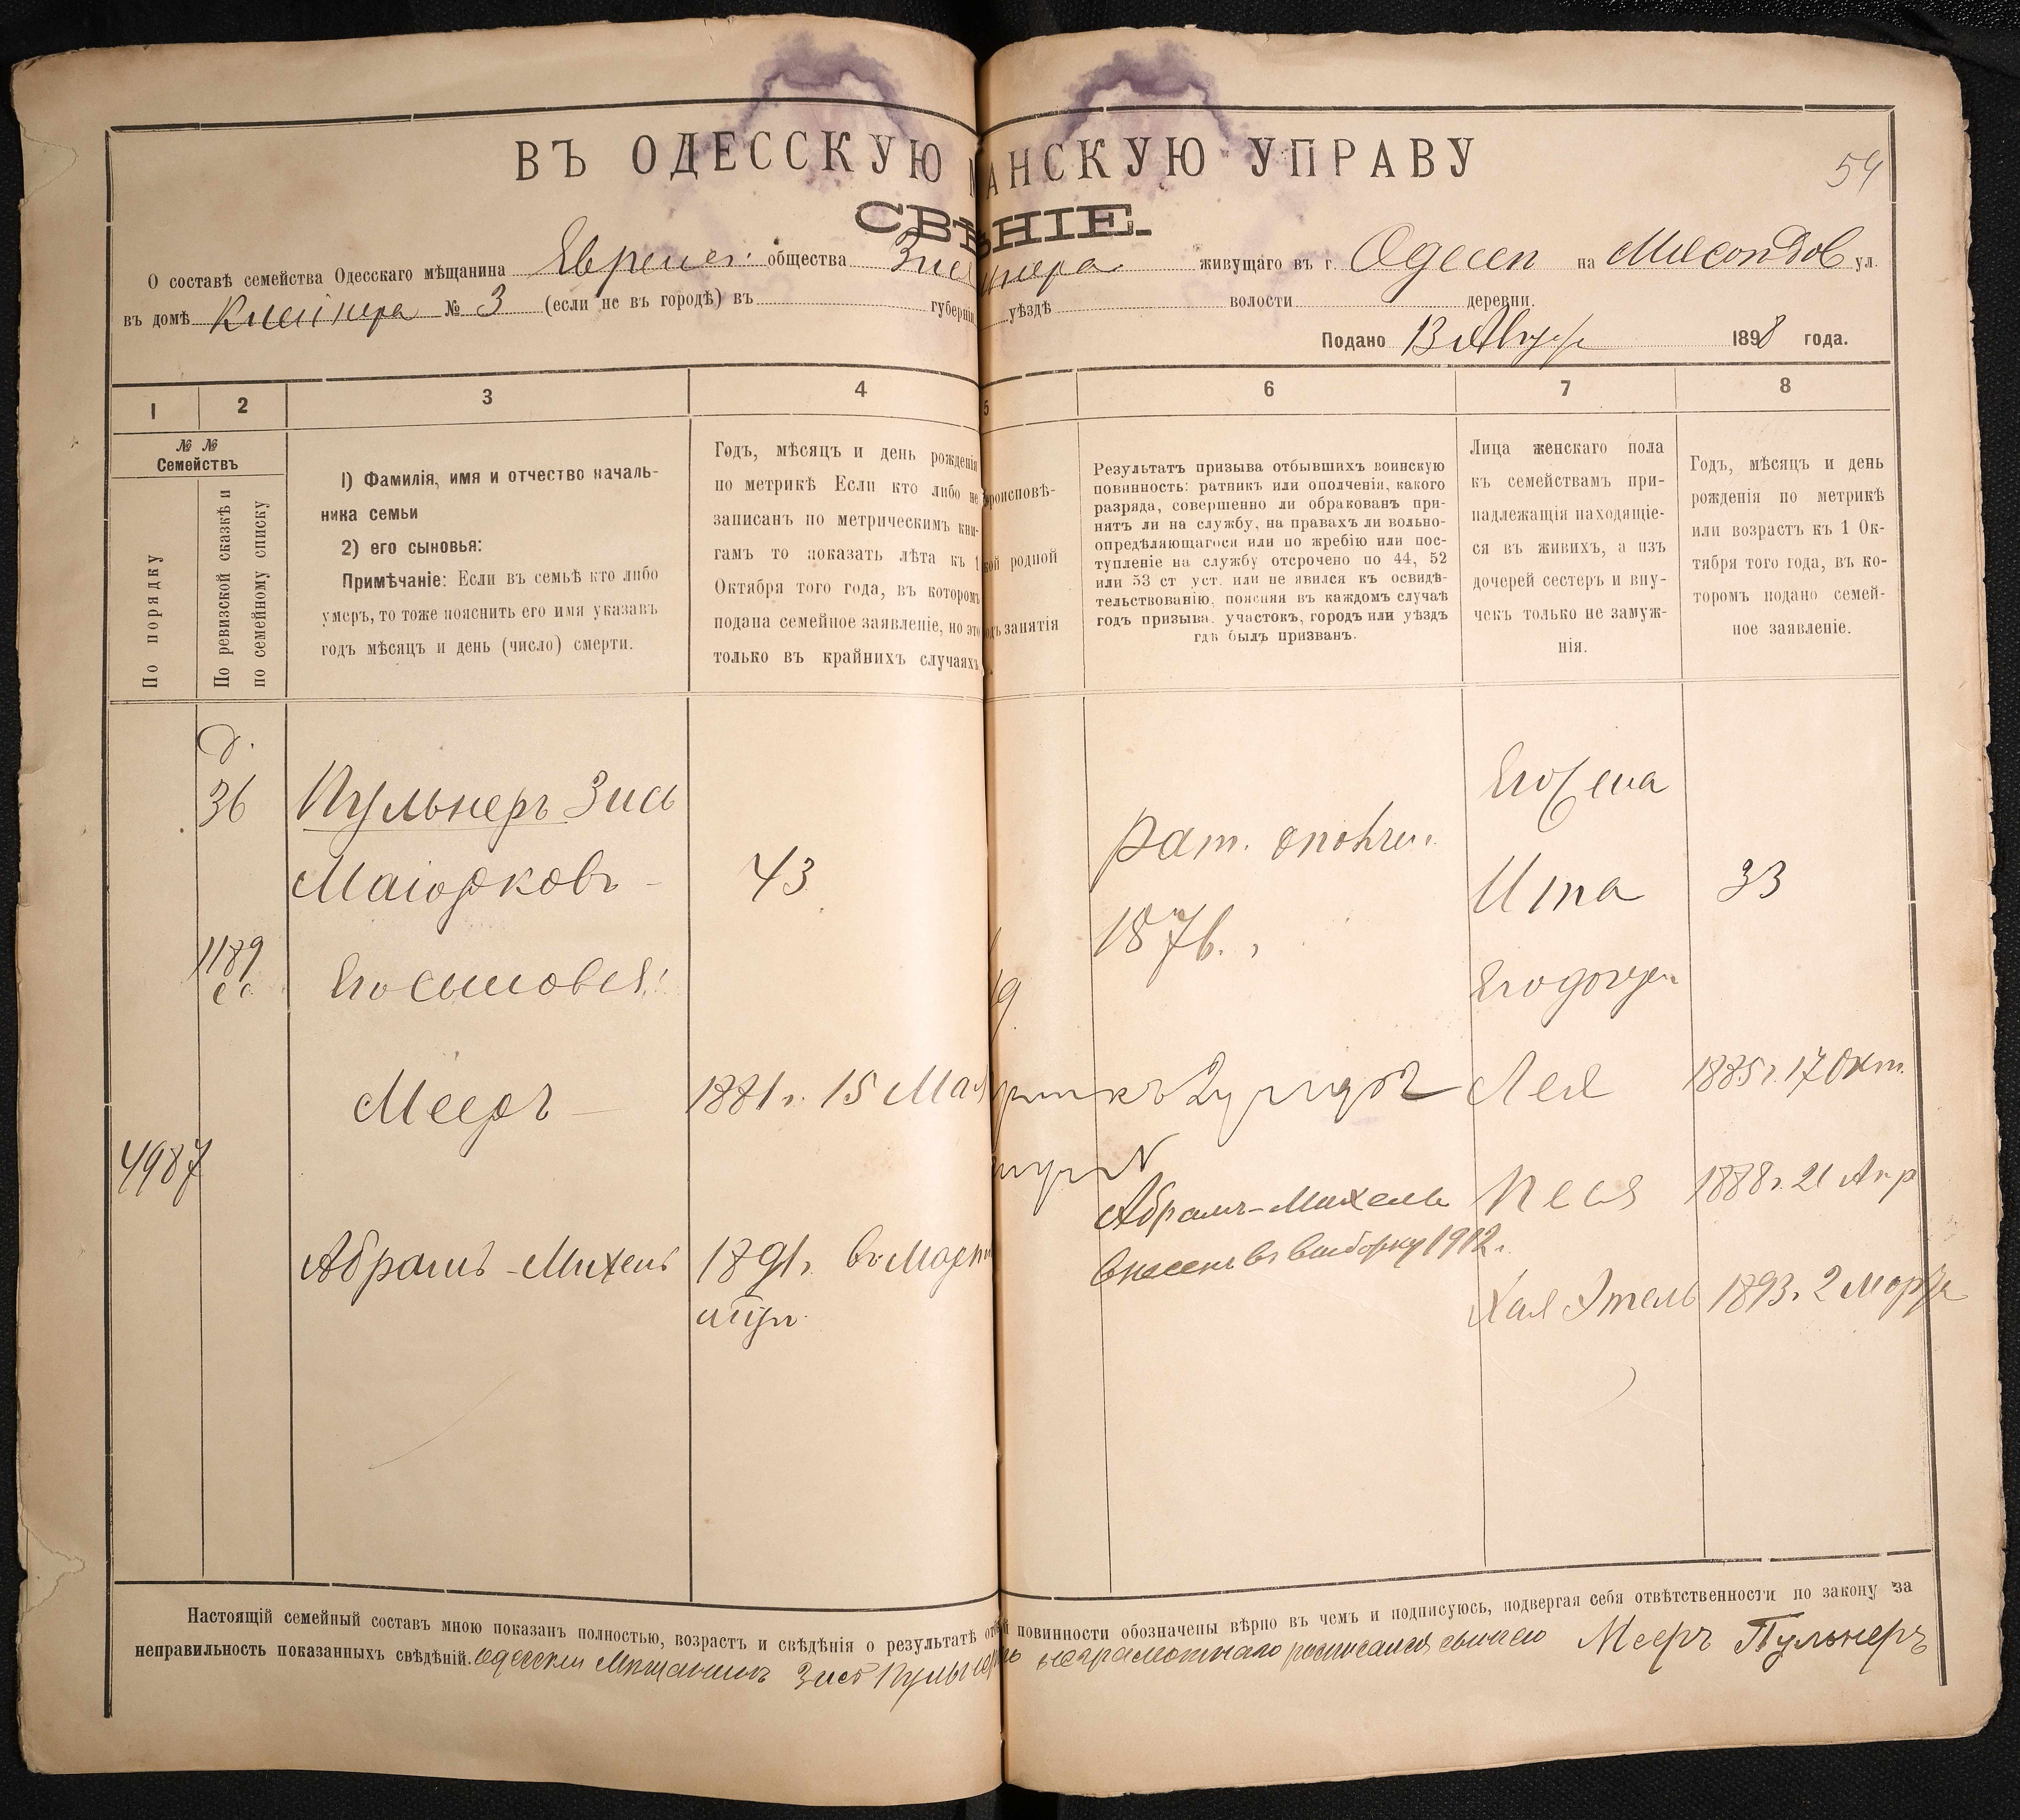 54
ВЪ ОДЕССКУЮ АНСКУЮ УПРАВУ
СВѢНІЕ.
О составѣ семейства Одесскаго мѣщанина Евреиск. общества живущаго въ г. Одессѣ на ул.
въ домѣ Клейнера № 3 (если не въ городѣ) въ губерніи уѣздѣ волости деревни
Подано 13 1898 года.
1 2 3 4 5 6 7 8
№ №
Семействъ
По порядку
По ревизской сказкѣ и
по семейному списку
1) Фамилія, имя и отчество началь-
ника семьи
2) его сыновья:
Примѣчаніе: Если въ семьѣ кто либо
умеръ, то тоже пояснить его имя указавъ
годъ мѣсяцъ и день (число) смерти.
Годъ, мѣсяцъ и день рожденія
по метрикѣ Если кто либо не
записанъ по метрическимъ кни-
гамъ то показать лѣта къ 1
Октября того года, въ которомъ
подана семейное заявленіе, но это
только въ крайнихъ случаяхъ
роисповѣ-
кой родной
одъ занятія
Результатъ призыва отбывшихъ воинскую
повинность: ратникъ или ополченія, какого
разряда, совершенно ли обракованъ при-
нятъ ли на службу, на правахъ ли вольно-
опредѣляющагося или по жребію или пос-
тупленіе на службу отсрочено по 44, 52
или 53 ст уст. или не явился къ освидѣ-
тельствованію, поясняя въ каждомъ случаѣ
годъ призыва. участокъ, городъ или уѣздъ
гдѣ былъ призванъ.
Лица женскаго пола
къ семействамъ при-
надлежащія находящіе-
ся въ живихъ, а изъ
дочерей сестеръ и вну-
чекъ только не замуж-
нія.
Годъ, мѣсяцъ и день
рожденія по метрикѣ
или возрастъ къ 1 Ок-
тября того года, въ ко-
торомъ подано семей-
ное заявленіе.
36 Пульнеръ Зись
Маіорковъ 43
1189
Его сыновья:
Мееръ 1881 г. 15 Мая
4987
Абрамъ-Михель 1891 г. въ Мартѣ
Рат. ополчен.
1876.
Абрамъ-Михель
внесенъ въ выборку 1912 г.
Его жена
Ита 33
Его дочери
Лея 1885 г. 17 Окт.
Песя 1888 г. 21 Апр
Хая Этель 1893 г. 2 Марта
Настоящій семейный составъ мною показанъ полностью, возрастъ и свѣдѣнія о результатѣ от й повинности обозначены вѣрно въ чемъ и подписуюсь, подвергая себя отвѣтственности по закону за
неправильность показанныхъ свѣдѣній. Одесскій Мѣщанинъ Зись Пульнеръ неграмотнаго росписался сынъ его Мееръ Пульнеръ